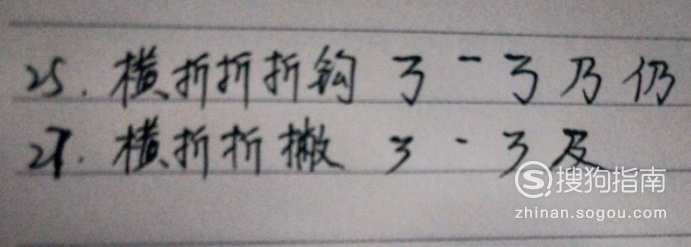 25. 横折折折钩 𠄎 ㇐ 𠄎 乃 仍
27. 横折折撇 ㇋ - ㇋ 及
搜狗指南
zhinan.sogou.com